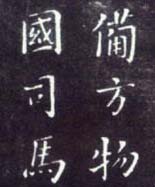 備方物
國司馬